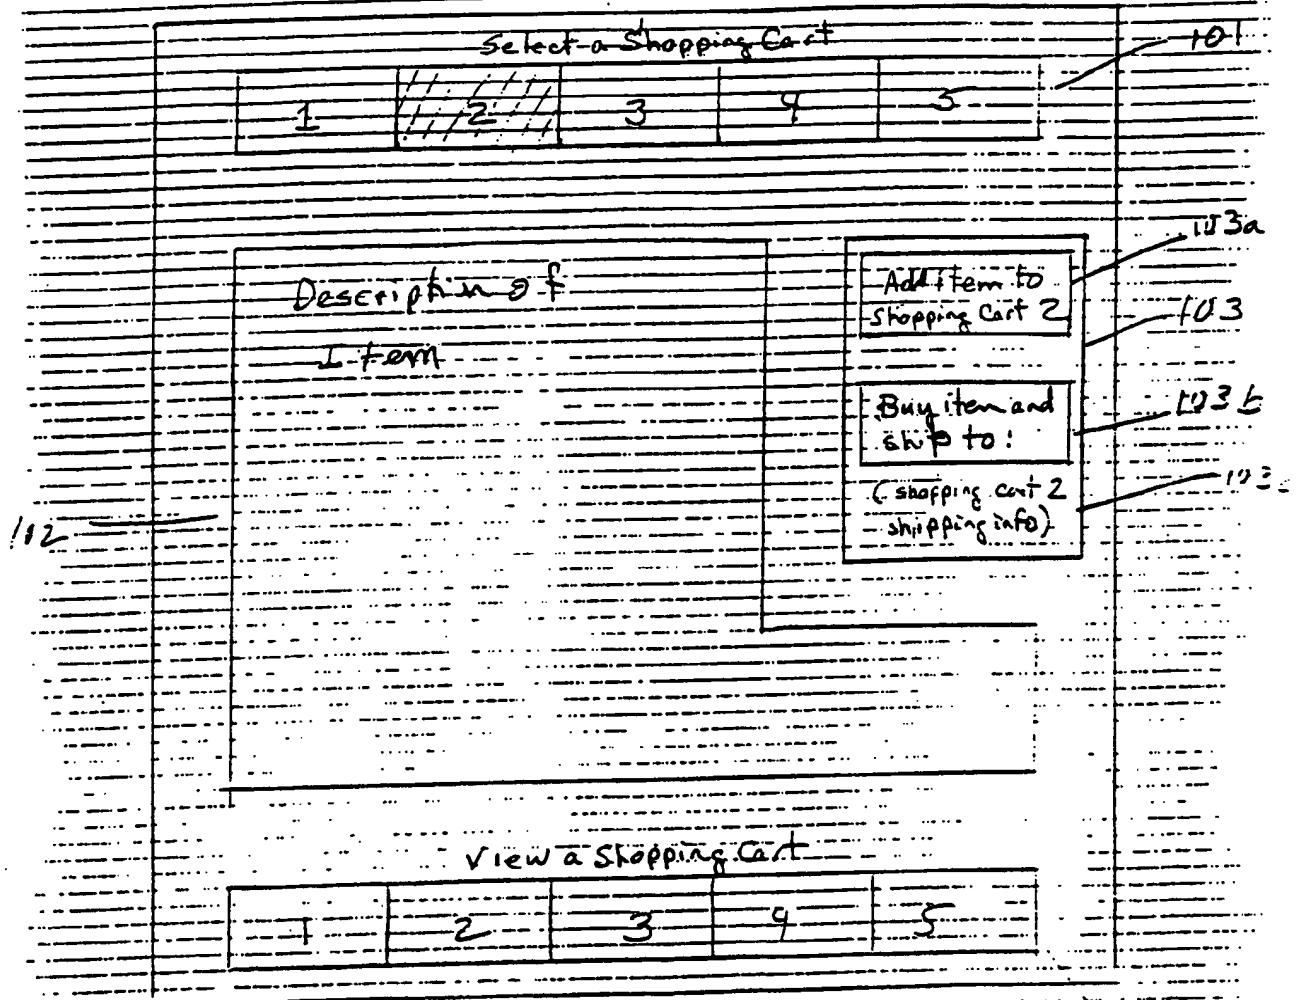 Select a Shopping Cart
101
1 2 3 4 5
103a
Description of
Item
Add item to
Shopping Cart 2
103
Buy item and
ship to:
103b
(shopping cart 2
shipping info)
102
View a Shopping Cart
1 2 3 4 5